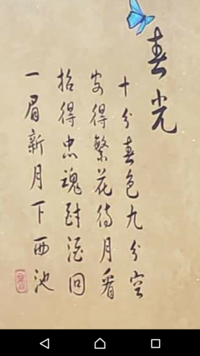 春光
十分春色九分空
安得繁花待月看
招得忠魂对酒回
一眉新月下西池